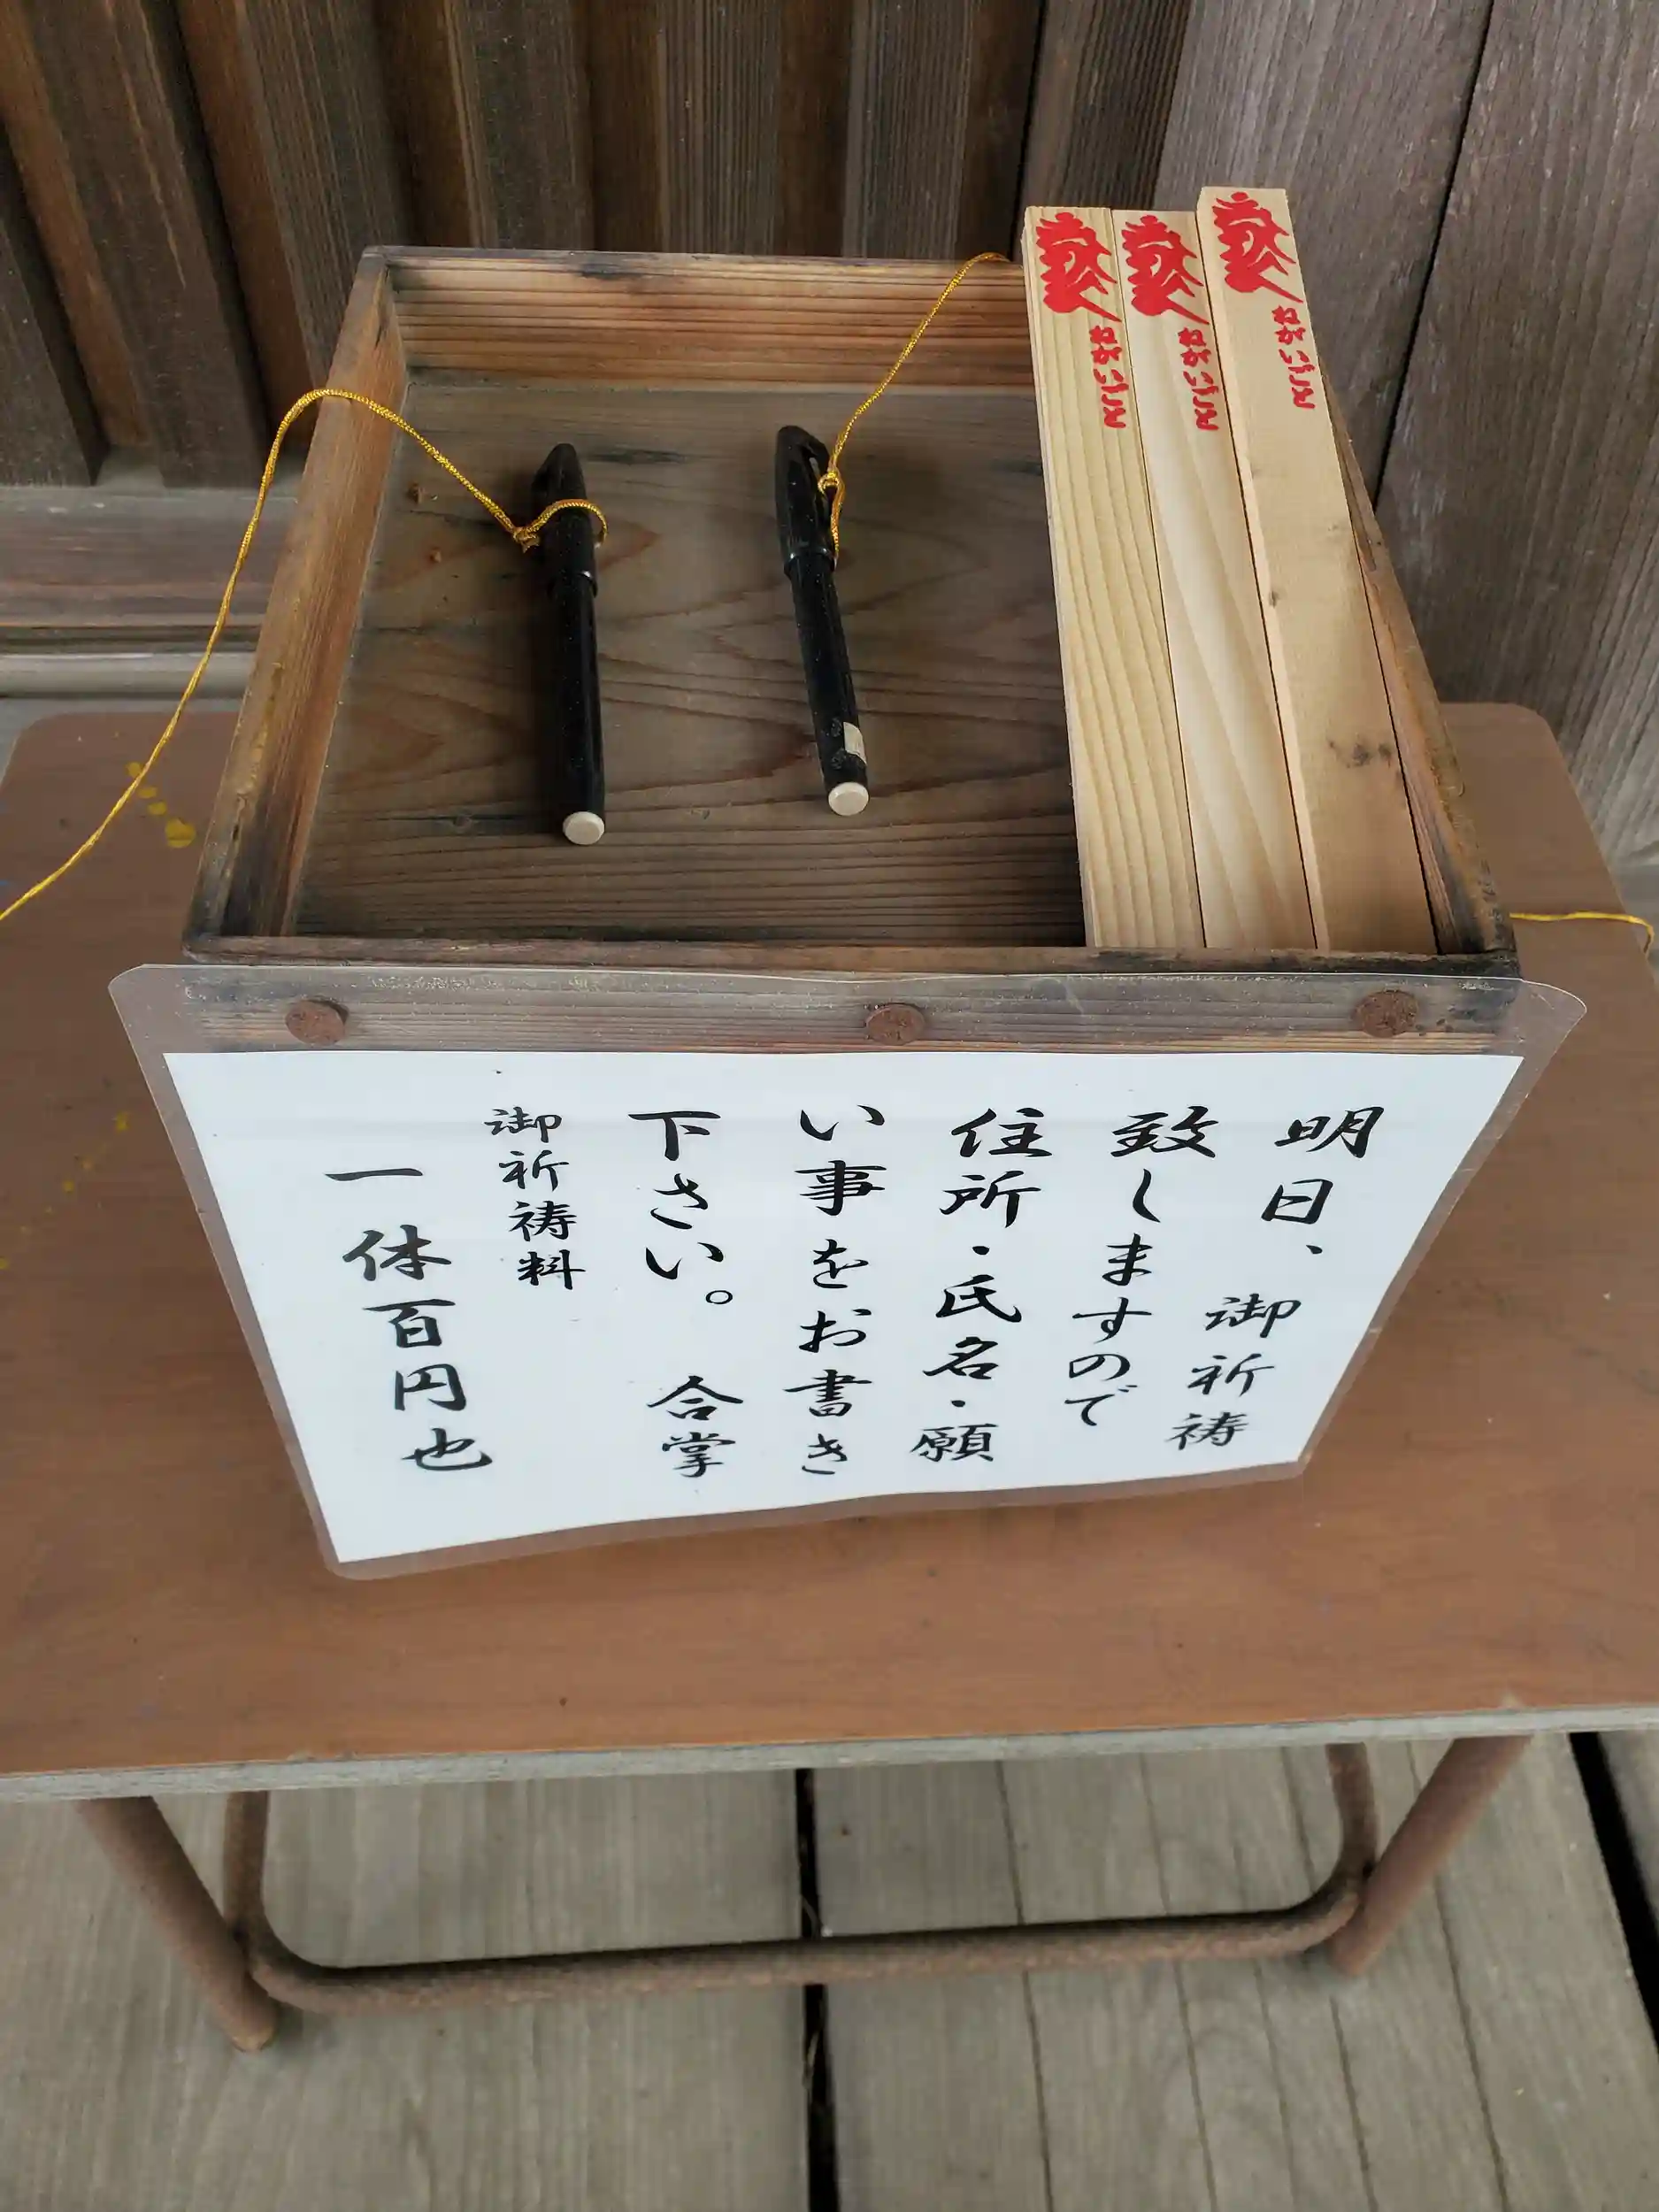 ねがいごと
ねがいごと
ねがいごと
明日、御祈祷
致しますので
住所・氏名・願
い事をお書き
下さい。 合掌
御祈祷料
一体百円也